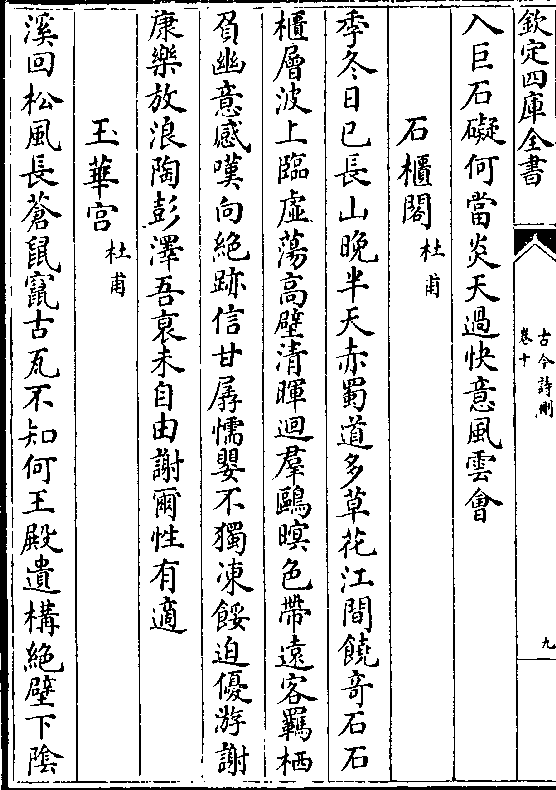 欽定四庫全書
古今詩刪
卷十
九
入巨石礙何當炎天過快意風雲會
石櫃閣 杜甫
季冬日已長山晚半天赤蜀道多草花江間饒奇石石
櫃層波上臨虛蕩高壁清暉迴羣鷗暝色帶遠客羈栖
負幽意感嘆向絶跡信甘孱懦嬰不獨凍餒迫優游謝
康樂放浪陶彭澤吾衰未自由謝爾性有適
玉華宫 杜甫
溪回松風長蒼鼠竄古瓦不知何王殿遺構絶壁下陰